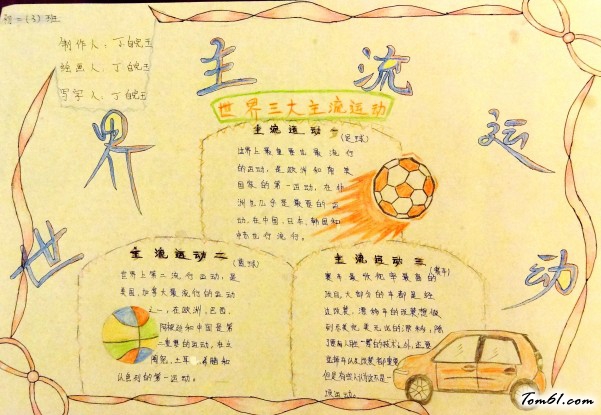 初一(3)班
制作人：丁皖玉
绘画人：丁皖玉
写字人：丁皖玉
世界主流运动
世界三大主流运动
主流运动一(足球)
世界上最重要也最流行
的运动，是欧洲和南美
国家的第一运动，在非
洲也几乎是最喜的运
动，在中国、日本、韩国和
中东也行流行。
主流运动二(篮球)
世界上第二流行运动，是
美国、加拿大最流行的运动
之一，在欧洲、巴西、
阿根廷和中国是第
二重要的运动，在立
陶宛、土耳其、希腊和
以色列的第一运动。
主流运动三(赛车)
赛车最吸佗爷最喜的
项目，大部分的车都是经
过改装
但是有些人认为这不是一
项运动。
Tom61.com